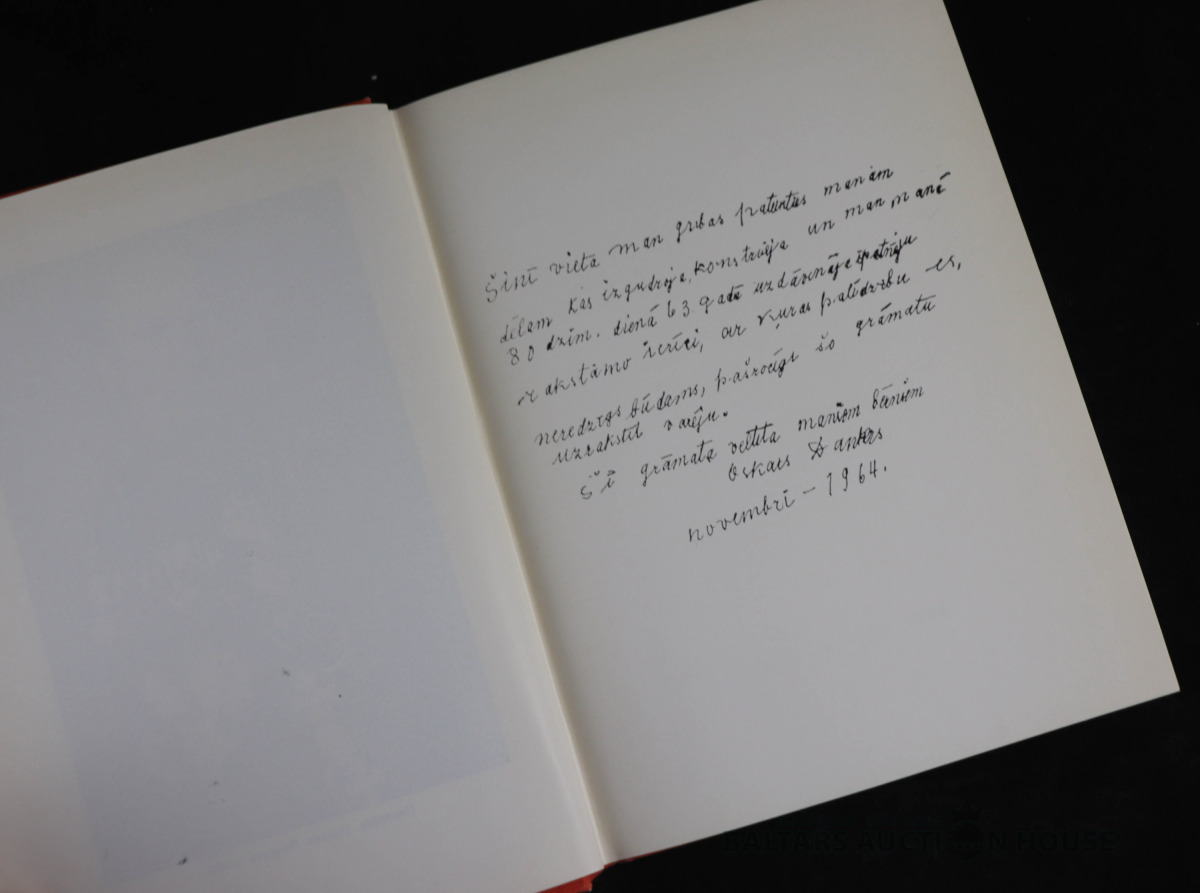 Šinī vietā man gribas pateikties manam
dēlam kas izgudroja, konstruēja un man manā
80 dzim. dienā 63. gadā uzdāvināja īpatnēju
rakstāmo ierīci, ar kuras palīdzību es,
neredzīgs būdams, pašrocīgi šo grāmatu
uzrakstīt varēju.
Šī grāmata veltīta maniem bērniem
Oskars Dankers
novembrī – 1964.
BALTARS AUCTION HOUSE